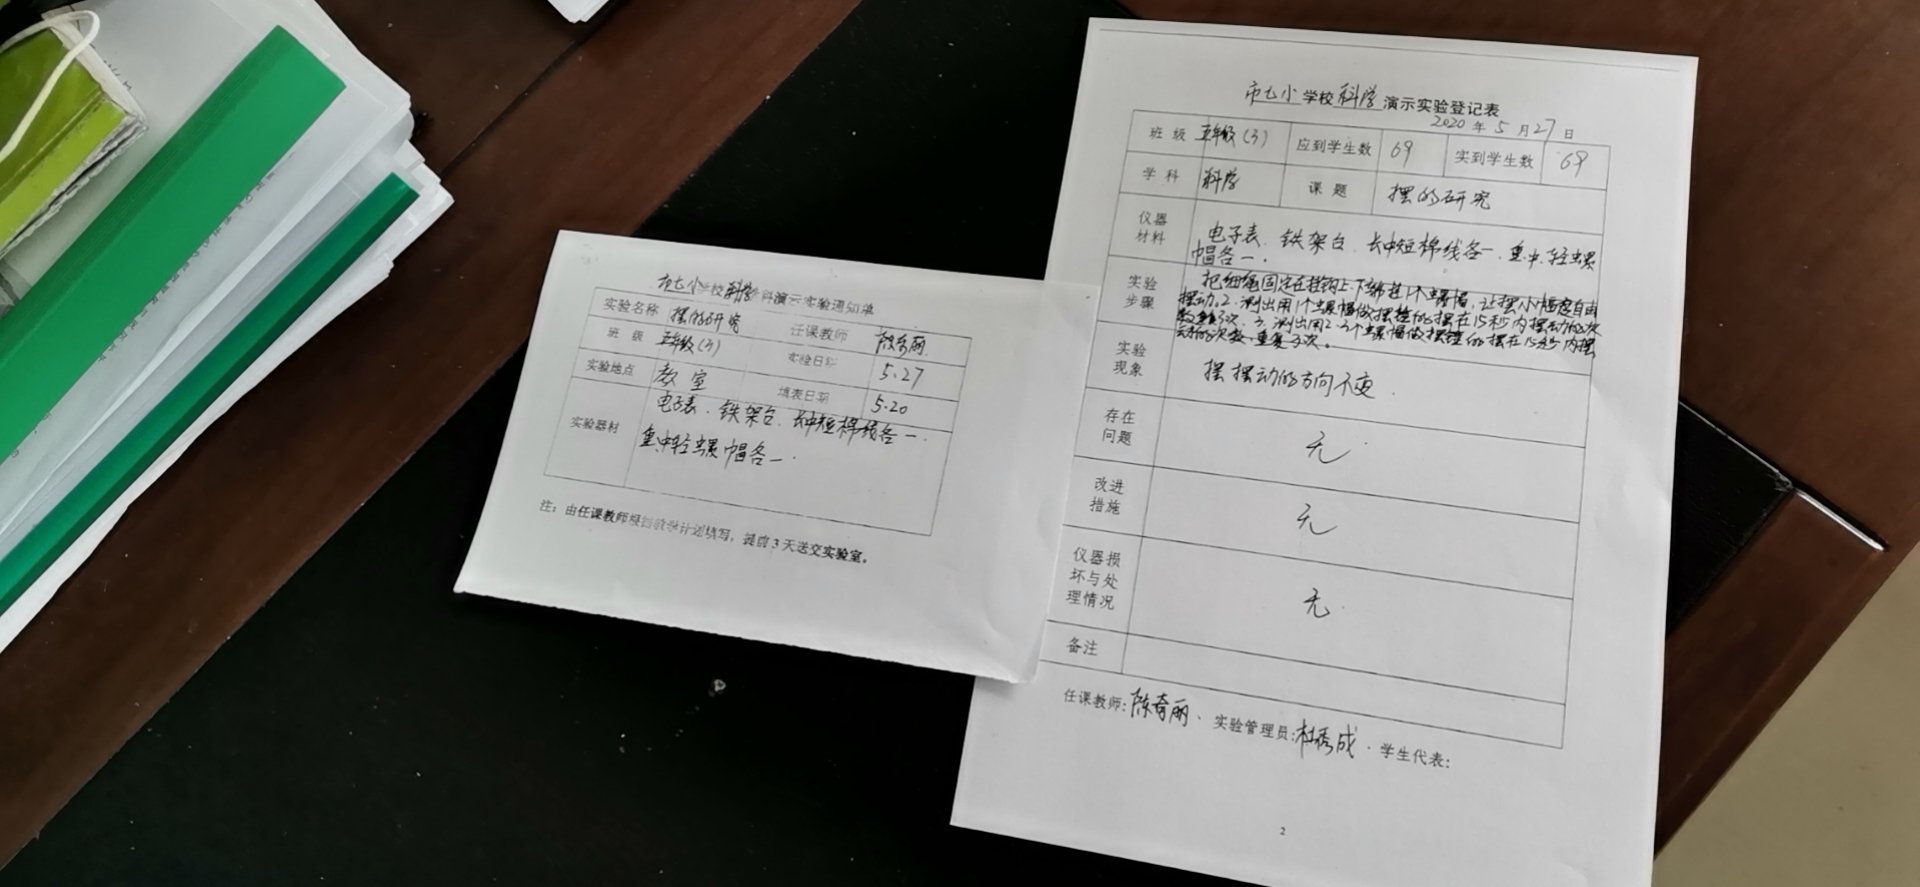 市七小学校科学学科演示实验通知单
实验名称 摆的研究 任课教师 陈奇丽
班 级 五年级(3) 实验日期 5.27
实验地点 教室 填表日期 5.20
实验器材 电子表、铁架台、长中短棉线各一、
重中轻螺帽各一、
注：由任课教师根据教学计划填写，提前3天送交实验室。
市七小学校科学演示实验登记表
2020年5月27日
班 级 五年级(3) 应到学生数 69 实到学生数 69
学 科 科学 课 题 摆的研究
仪器材料 电子表、铁架台、长中短棉线各一、重、中、轻螺
帽各一、
实验步骤 把细绳固定在挂钩上、下端挂1个螺帽，让摆小幅度自由
摆动。2、测出用1个螺帽做摆锤的摆在15秒内摆动的次
数、重复3次。3、测出用2、3个螺帽做摆锤的摆在15秒内摆
动的次数、重复3次。
实验现象 摆摆动的方向不变
存在问题 无
改进措施 无
仪器损坏与处理情况 无
备注
任课教师：陈奇丽、 实验管理员：杜秀成 、学生代表：
2